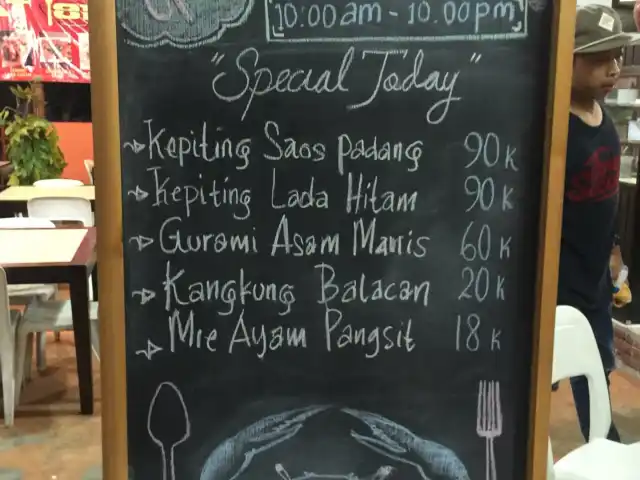 10:00 am - 10.00 pm
"Special Today"
Kepiting Saos Padang 90 K
Kepiting Lada Hitam 90 K
Gurami Asam Manis 60 K
Kangkung Balacan 20 K
Mie Ayam Pangsit 18 K